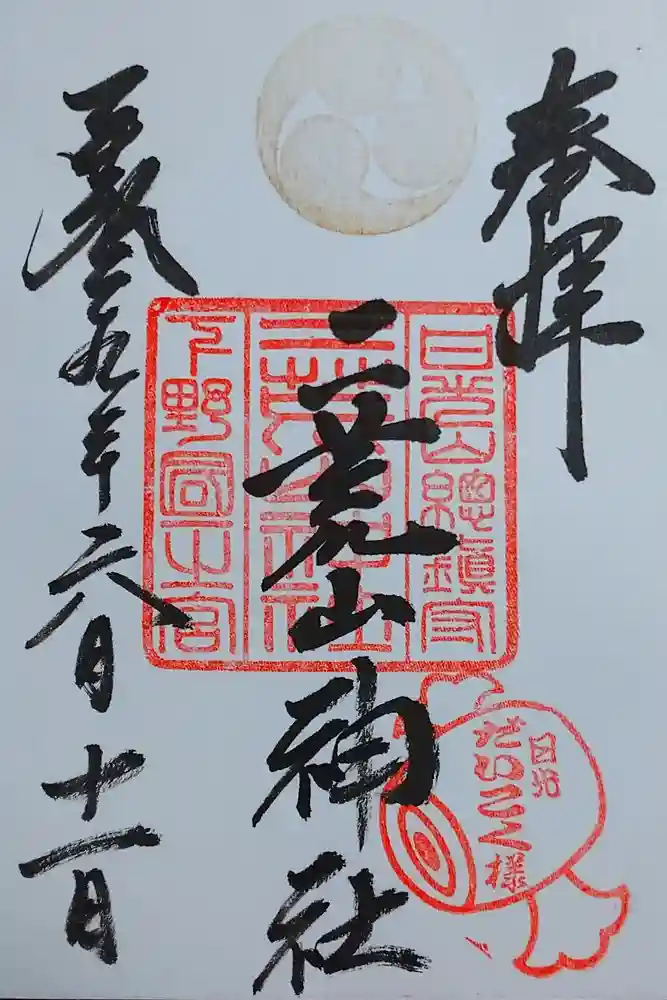 奉拝
日光山總鎮守
二荒山神社
下野國一之宮
二荒山神社
平成二九年六月十一日
日光
だいこく様